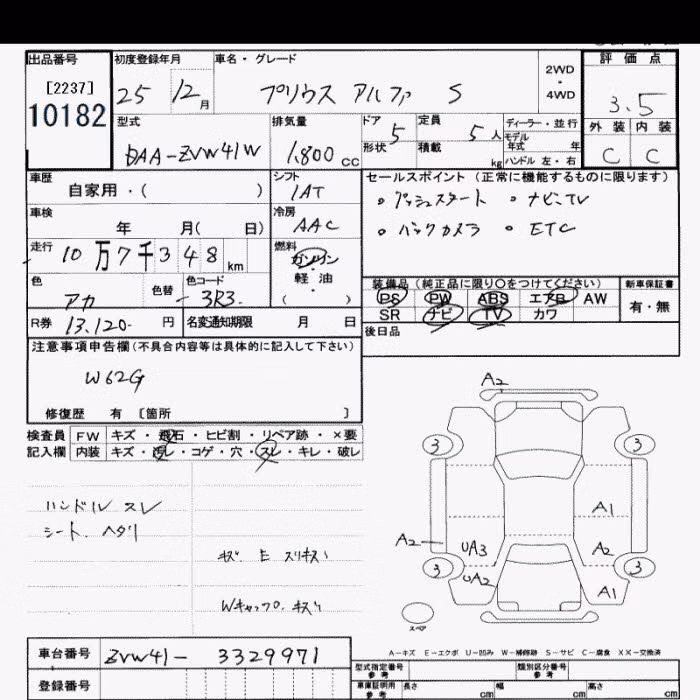 出品番号 初度登録年月 車名・グレード 評価点
[2237] 25 12月 プリウス アルファ S 2WD・4WD 3.5
10182 型式 排気量 ドア 5 定員 5人 ディーラー・並行 外装 内装
DAA-ZVW41W 1,800cc 形状 積載 kg モデル年式 年 C C
ハンドル 左・右
車歴 シフト セールスポイント(正常に機能するものに限ります)
自家用・( ) IAT 。プッシュスタート 。ナビ・TV
車検 年 月( 日) 冷房 AAC 。バックカメラ 。ETC
走行 10万7千348km 燃料 ガソリン・軽油・( )
色 アカ 色替 色コード 3R3 装備品(純正品に限り〇をつけてください) 新車保証書
PS PW ABS エアB AW 有・無
R券 13,120- 円 名変通知期限 月 日 SR ナビ TV カワ
後日品
注意事項申告欄(不具合内容等は具体的に記入して下さい)
W62G
修復歴 有〔箇所 〕
検査員 FW キズ・飛石・ヒビ割・リペア跡・×要
記入欄 内装 キズ・汚レ・コゲ・穴・スレ・キレ・破レ
ハンドル スレ
シート ヘタリ
キズ E スリキズ
Wキャップ キズ
A2
3 3
A1
A2 UA3 A2
3 UA2 3
A1
スペア
A-キズ E-エクボ U-凹み W-補修跡 S-サビ C-腐食 XX-交換済
車台番号 ZVW41-3329971 型式指定番号 参考 類別区分番号 参考
登録番号 車庫証明用 参考 長さ cm 幅 cm 高さ cm